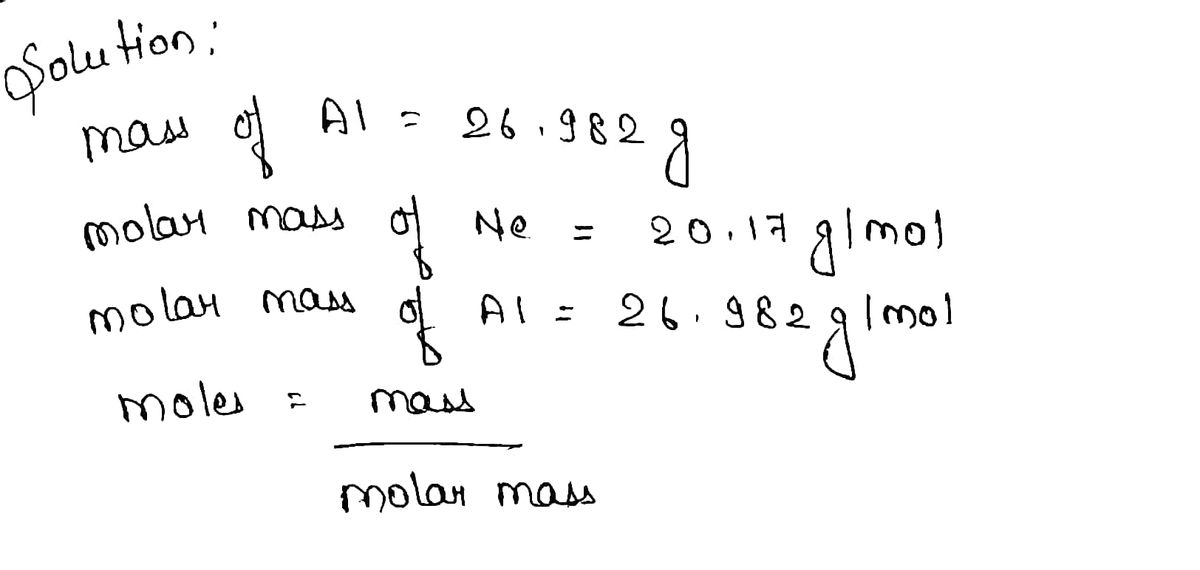 Solution:
mass of Al = 26.982 g
molar mass of Ne = 20.17 g/mol
molar mass of Al = 26.982 g/mol
moles = mass
molar mass